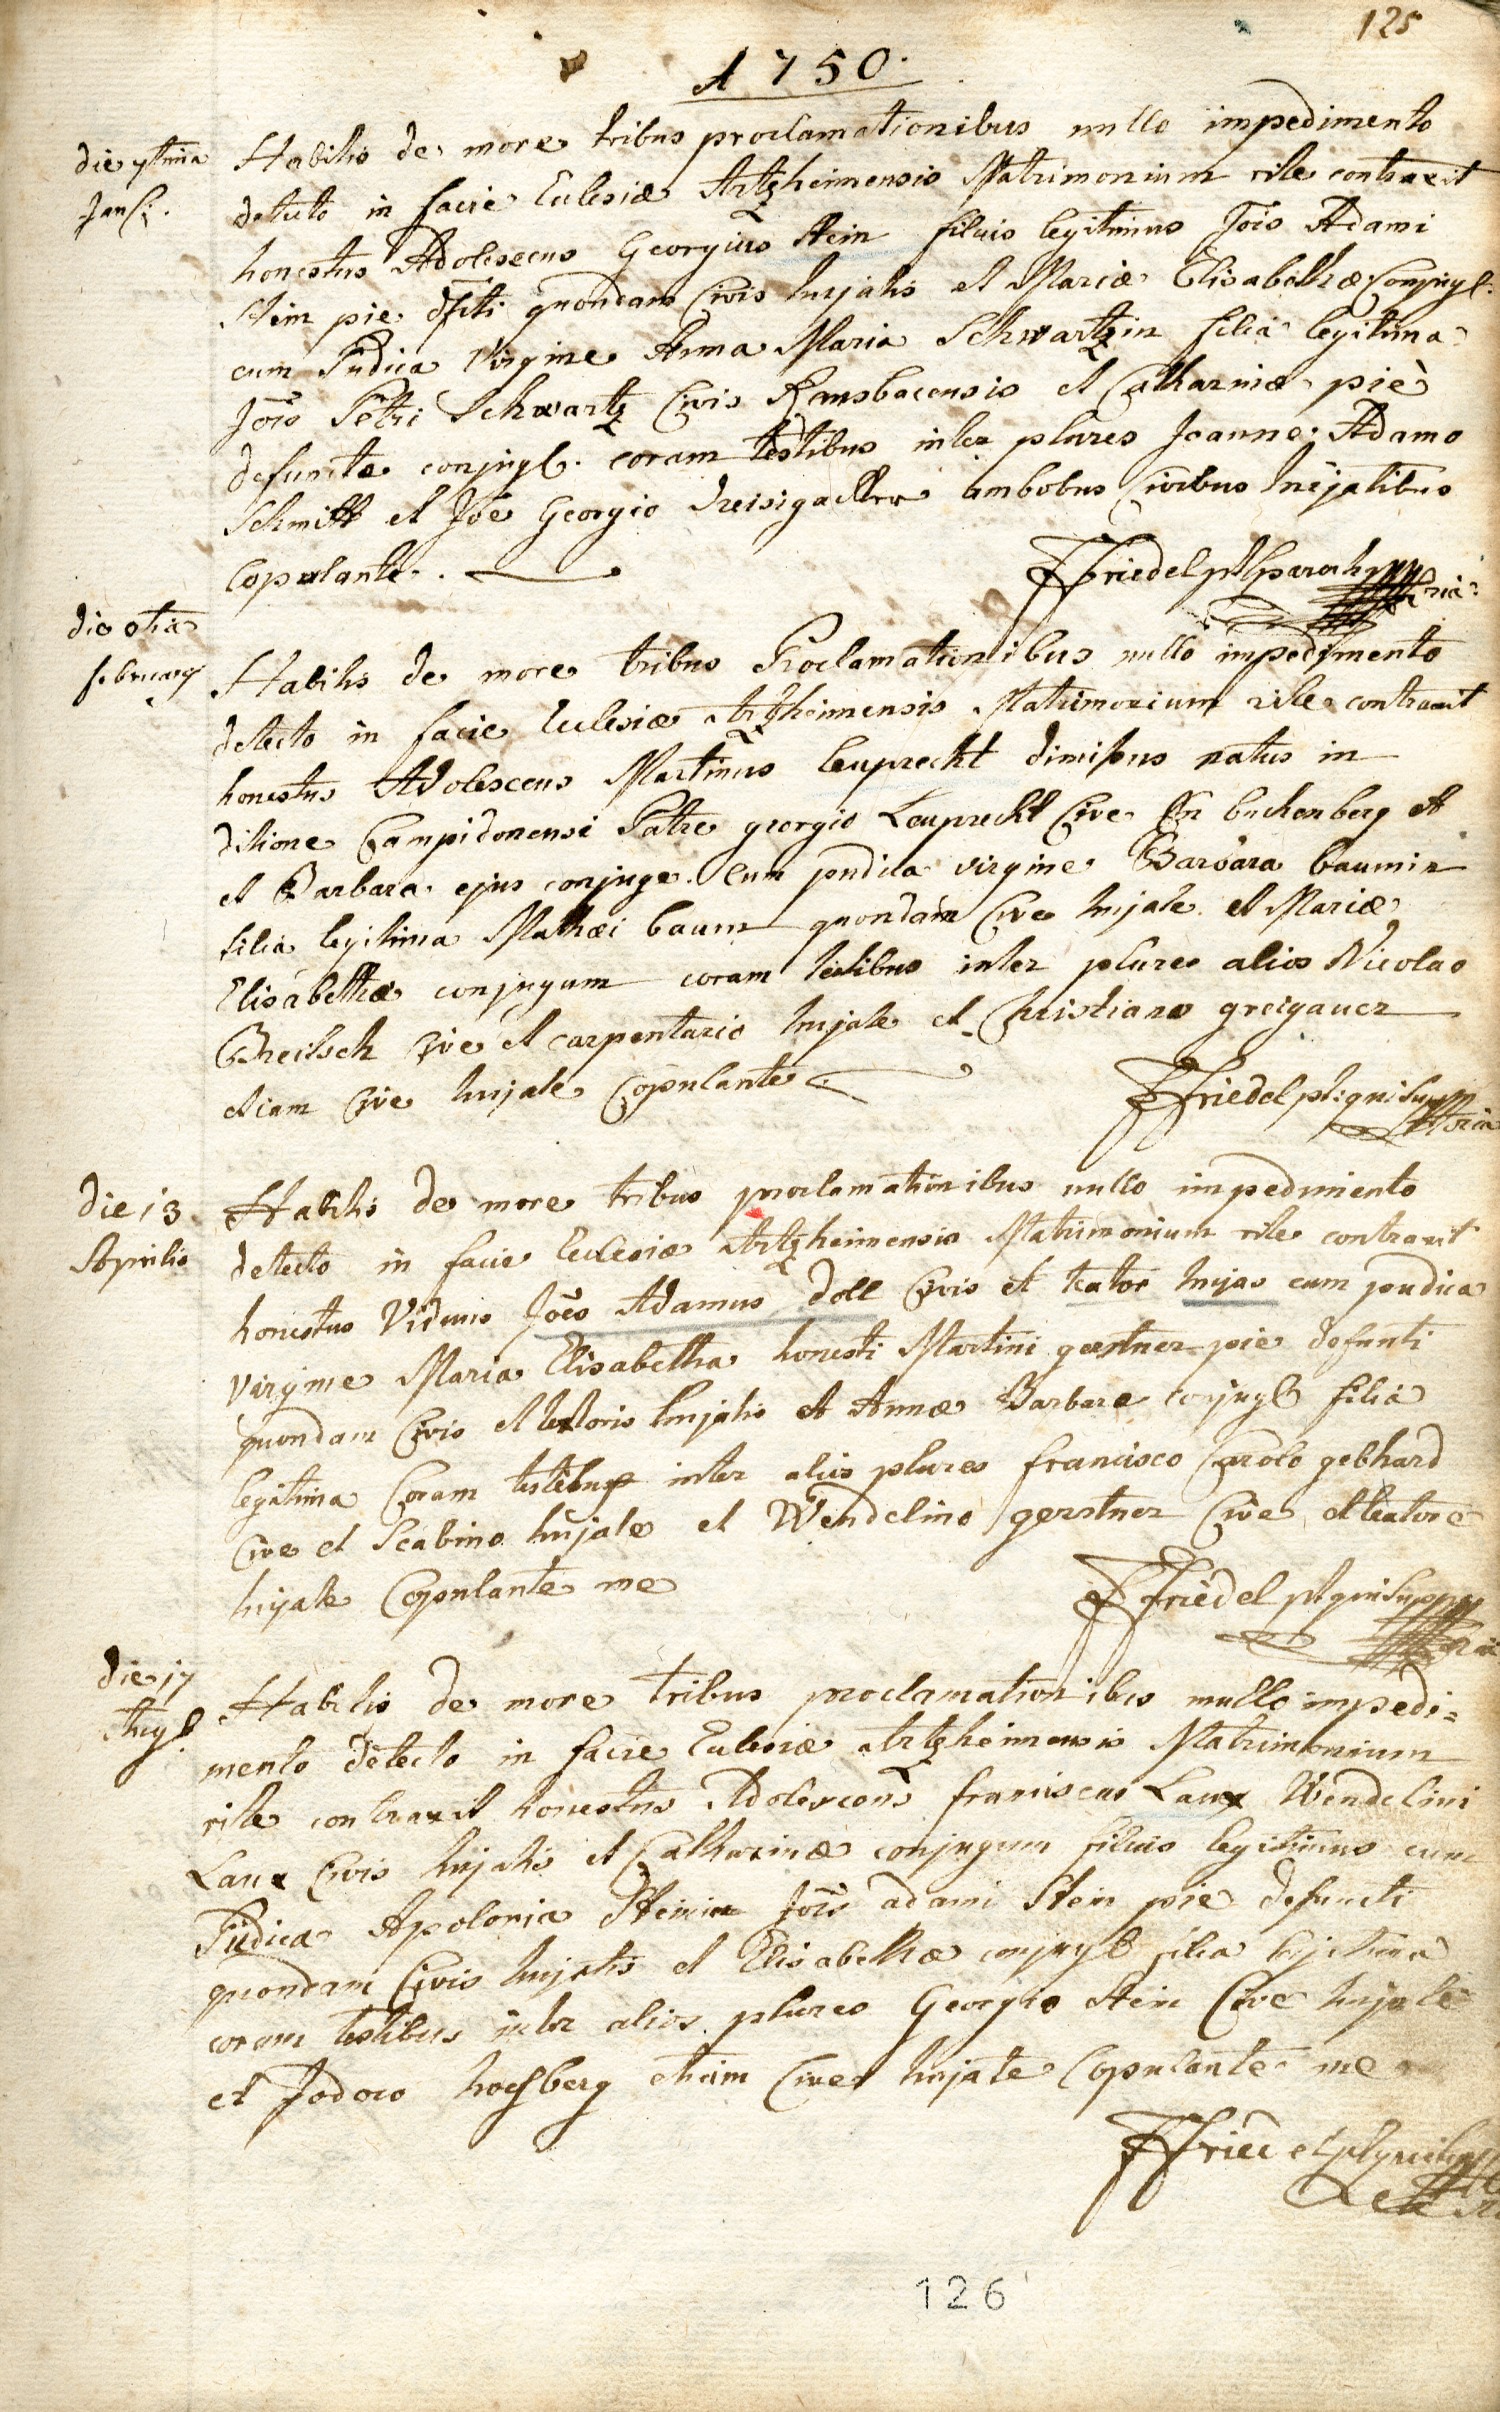 125
A 1750.
die 7tima
Jan̄:
Habitis de more tribus proclamationibus nullo impedimento
detecto in facie Eclesiæ Artzheimensis Matrimonium rite contraxit
honestus Adolescens Georgius Stein filius legitimus Jōis Adami
Stein pie dfcti quondam Civis hujatis et Mariæ Elisabethæ Conjugl:
cum Pudica Virgine Anna Maria Schwartzin filia legitima
Jōis Petri Schwartz Civis Ransbacensis et Catharinæ piè
defuncte conjugl. coram testibus inter plures Joanne Adamo
Schmitt et Jōe Georgio ambobus Civibus hujatibus
Copulante.
FFriedel plt parochus
die 8tia
february
Habitis de more tribus Proclamationibus nullo impedimento
detecto in facie Eclesiæ Artzheimensis Matrimonium rite contraxit
honestus Adolescens Martinus leuprecht dimissus natus in
ditione Campidonensi Patre georgio Leuprecht Cive In buchenberg et
et Barbara ejus conjuge. cum pudica virgine Barbara baumin
filia legitima Mathæi baum quondam Cive hujate et Mariæ
Elisabethæ conjugum coram testibus inter plures alios Nicolao
Breitsch Cive et carpentario hujate et Christiano greigauer
etiam Cive hujate Copulante
FFriedel plt: qui supra
die 13
Aprilis
Habitis de more tribus proclamationibus nullo impedimento
detecto in facie Eclesiæ Artzheimensis Matrimonium rite contraxit
honestus Viduus Jōes Adamus doll Civis et textor hujas cum pudica
virgine Maria Elisabetha honesti Martini gerstner pie defuncti
quondam Civis et textoris hujatis et Annæ Barbare conjugl filia
legitima Coram testibus inter alios plures francisco Carolo gebhard
Cive et Scabino hujate et Wendelino gerstner Cive et textore
hujate Copulante me
FFriedel plt qui supra
die 17
Augl.
Habitis de more tribus proclamationibus nullo impedi=
mento detecto in facie Eclesiæ Artzheimensis Matrimonium
rite contraxit honestus Adolescens franciscus Laux Wendelini
Laux Civis hujatis et Catharinæ conjugum filius legitimus cum
Pudica Apolonia Steinin Jōis adami Stein pie defuncti
quondam Civis hujatis et Elisabethæ conjugl filia legitima
coram testibus inter alios plures Georgio Stein Cive hujate
et Jodoco hochberg etiam Cive hujate Copulante me
FFriedel plt qui supra
126